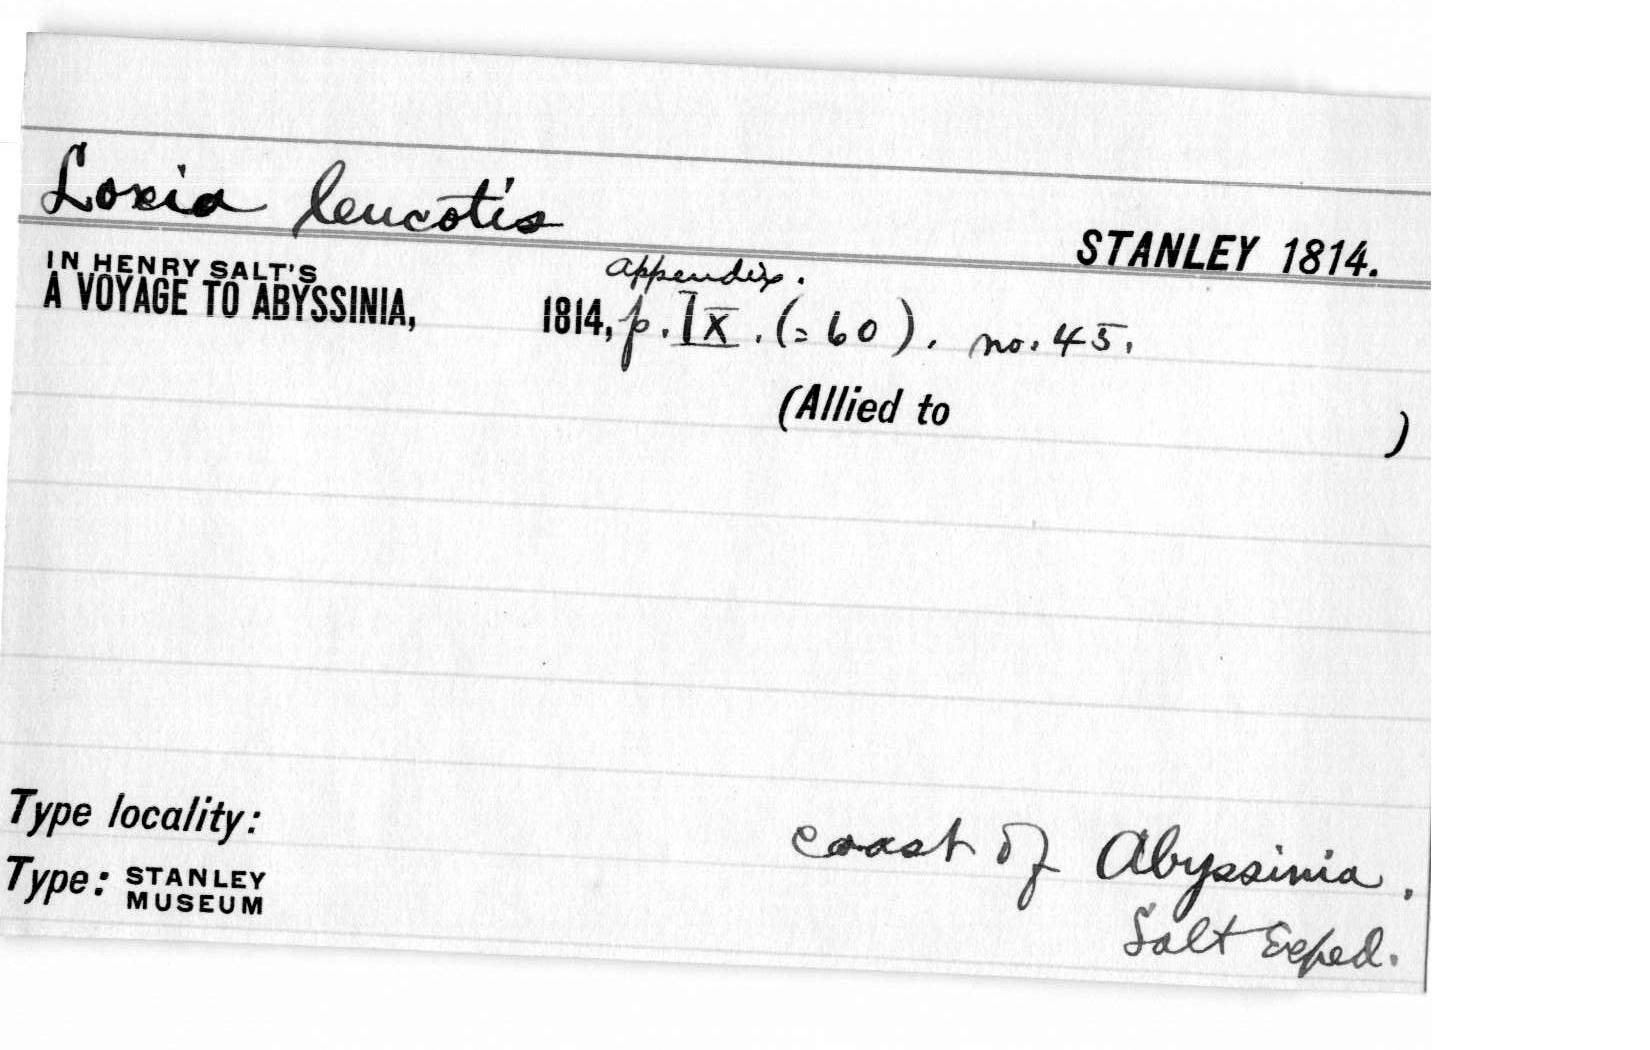 Loxia leucotis
STANLEY 1814.
IN HENRY SALT'S
A VOYAGE TO ABYSSINIA,
appendix.
1814, p. IX. (=60). no. 45.
(Allied to )
Type locality:
coast of Abyssinia.
Type: STANLEY MUSEUM
Salt Exped.